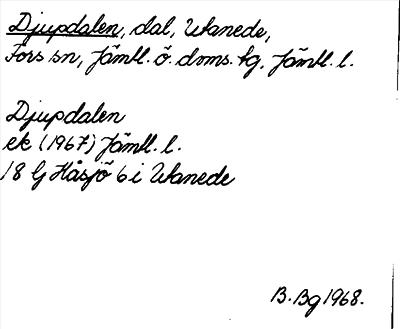 Djupdalen, dal, Utanede,
Fors sn, Jämtl. ö. doms. tg, Jämtl. l.
Djupdalen
ek (1967) Jämtl. l.
18 G Håsjö 6 i Utanede
B. Bg 1968.